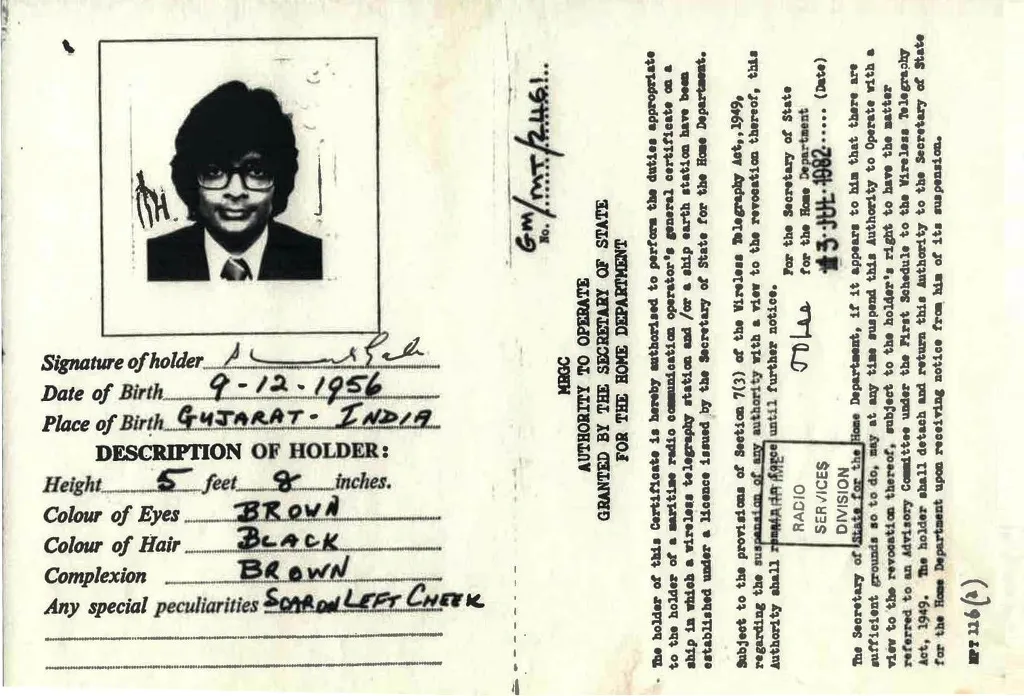 Signature of holder
Date of Birth 9-12-1956
Place of Birth GUJARAT - INDIA
DESCRIPTION OF HOLDER:
Height 5 feet 8 inches.
Colour of Eyes BROWN
Colour of Hair BLACK
Complexion BROWN
Any special peculiarities SCAR ON LEFT CHEEK
No. GM/MT/2461
MRGC
AUTHORITY TO OPERATE
GRANTED BY THE SECRETARY OF STATE
FOR THE HOME DEPARTMENT
The holder of this Certificate is hereby authorised to perform the duties appropriate
to the holder of a maritime radio communication operator's general certificate on a
ship in which a wireless telegraphy station and/or a ship earth station have been
established under a licence issued by the Secretary of State for the Home Department.
Subject to the provisions of Section 7(3) of the Wireless Telegraphy Act, 1949,
regarding the suspension of any authority with a view to the revocation thereof, this
Authority shall remain in force until further notice.
For the Secretary of State
for the Home Department
13 JUL 1982 (Date)
RADIO
SERVICES
DIVISION
The Secretary of State for the Home Department, if it appears to him that there are
sufficient grounds so to do, may at any time suspend this Authority to Operate with a
view to the revocation thereof, subject to the holder's right to have the matter
referred to an Advisory Committee under the First Schedule to the Wireless Telegraphy
Act, 1949. The holder shall detach and return this Authority to the Secretary of State
for the Home Department upon receiving notice from him of its suspension.
MPT 226(2)